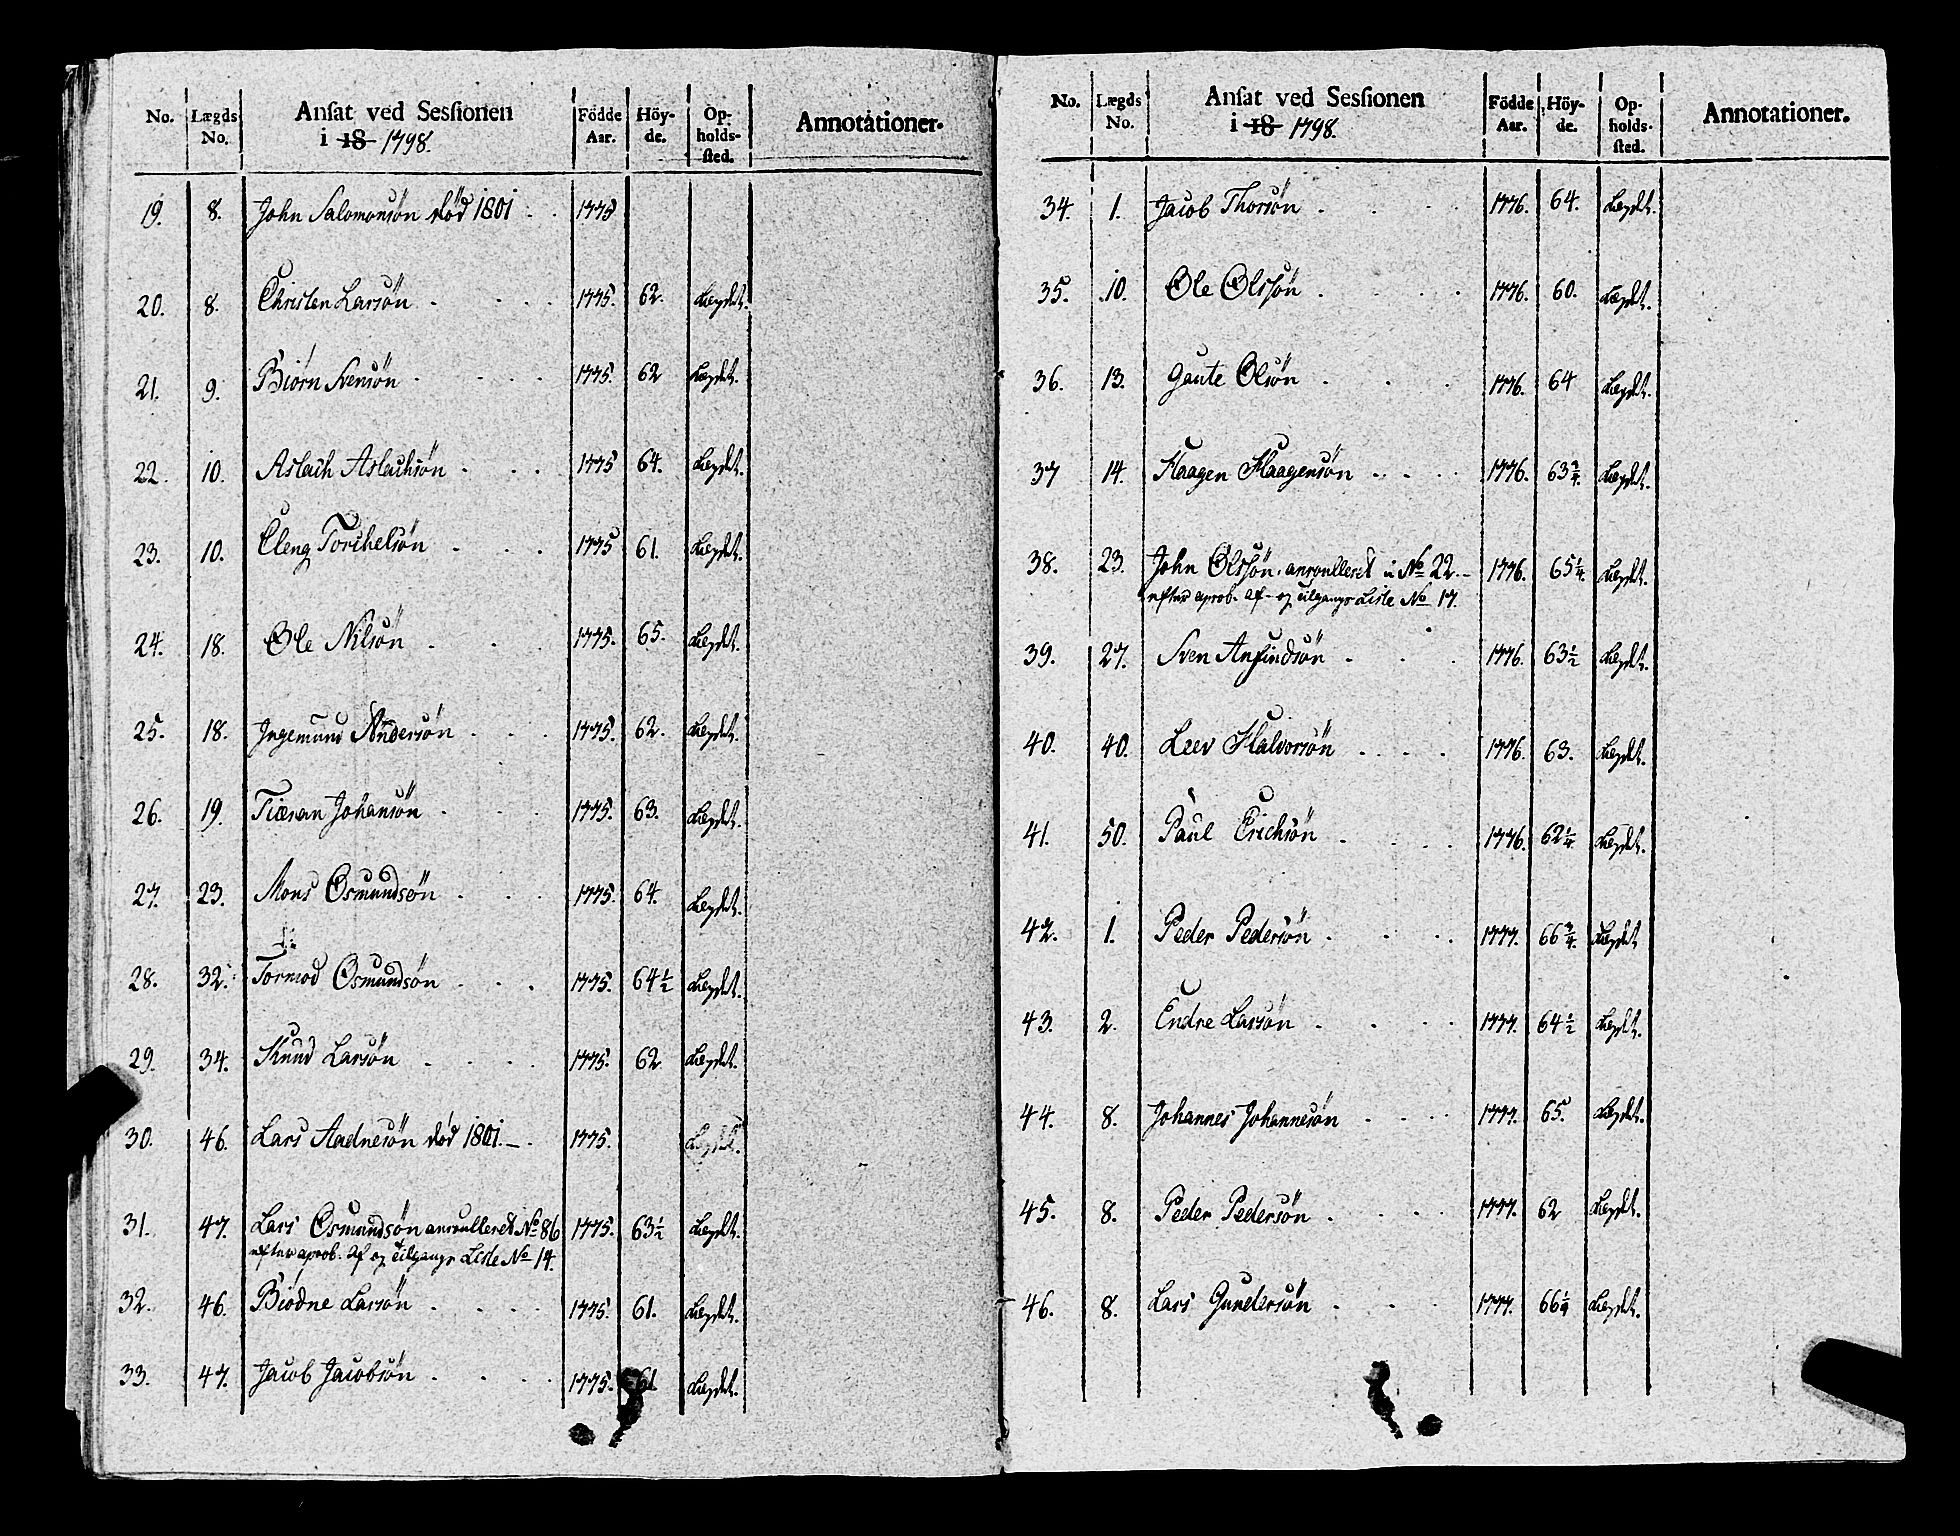 No. Lægds No. Ansat ved Sessionen i 18 1798. Födde Aar. Höy-de. Op-holds-sted. Annotationer.
19. 8. John Salomonsön död 1801 1775
20. 8. Christen Larsön 1775. 62. Lægdet.
21. 9. Biørn Svensön 1775. 62 Lægdet.
22. 10. Aslach Aslachsön 1775 64. Lægdet.
23. 10. Eleng Torchelsön 1775 61. Lægdet.
24. 18. Ole Nilsön 1775. 65. Lægdet.
25. 18. Ingemund Andersön 1775. 62. Lægdet.
26. 19. Johansön 1775. 63. Lægdet.
27. 23. Mons Osmundsön 1775. 64. Lægdet.
28. 32. Tormod Osmundsön 1775. 64½ Lægdet.
29. 34. Knud Larsön 1775. 62 Lægdet.
30. 46. Lars Aadnesön död 1801. 1775. Lægdet.
31. 47. Lars Osmundsön anroulleret No 86 1775. 63½ Lægdet.
efter aprob. af og tilgangs Liste No 14.
32. 46. Biødne Larsön 1775. 61. Lægdet.
33. 47. Jacob Jacobsön 1775. 61 Lægdet.
No. Lægds No. Ansat ved Sessionen i 18 1798. Födde Aar. Höy-de. Op-holds-sted. Annotationer.
34. 1. Jacob Thorsön 1776. 64. Lægdet.
35. 10. Ole Olssön 1776. 60. Lægdet.
36. 13. Gaute Olsön 1776. 64 Lægdet.
37 14. Haagen Haagensön 1776. 63¾. Lægdet.
38. 23. John Olssön. anroulleret i No 22. 1776. 65¼. Lægdet.
efter aprob. af- og tilgangs Liste No 17.
39. 27. Sven Anfindsön 1776. 63½ Lægdet.
40. 40. Leev Halvorsön 1776. 63. Lægdet.
41. 50. Paul Erichsön 1776. 62¼. Lægdet.
42. 1. Peder Pedersön 1777. 66¾. Lægdet
43. 2. Endre Larsön 1777. 64½ Lægdet.
44. 8. Johannes Johannesön 1777. 65. Lægdet.
45. 8. Peder Pedersön 1777. 62 Lægdet.
46. 8. Lars Gundersön 1777. 66¼ Lægdet.